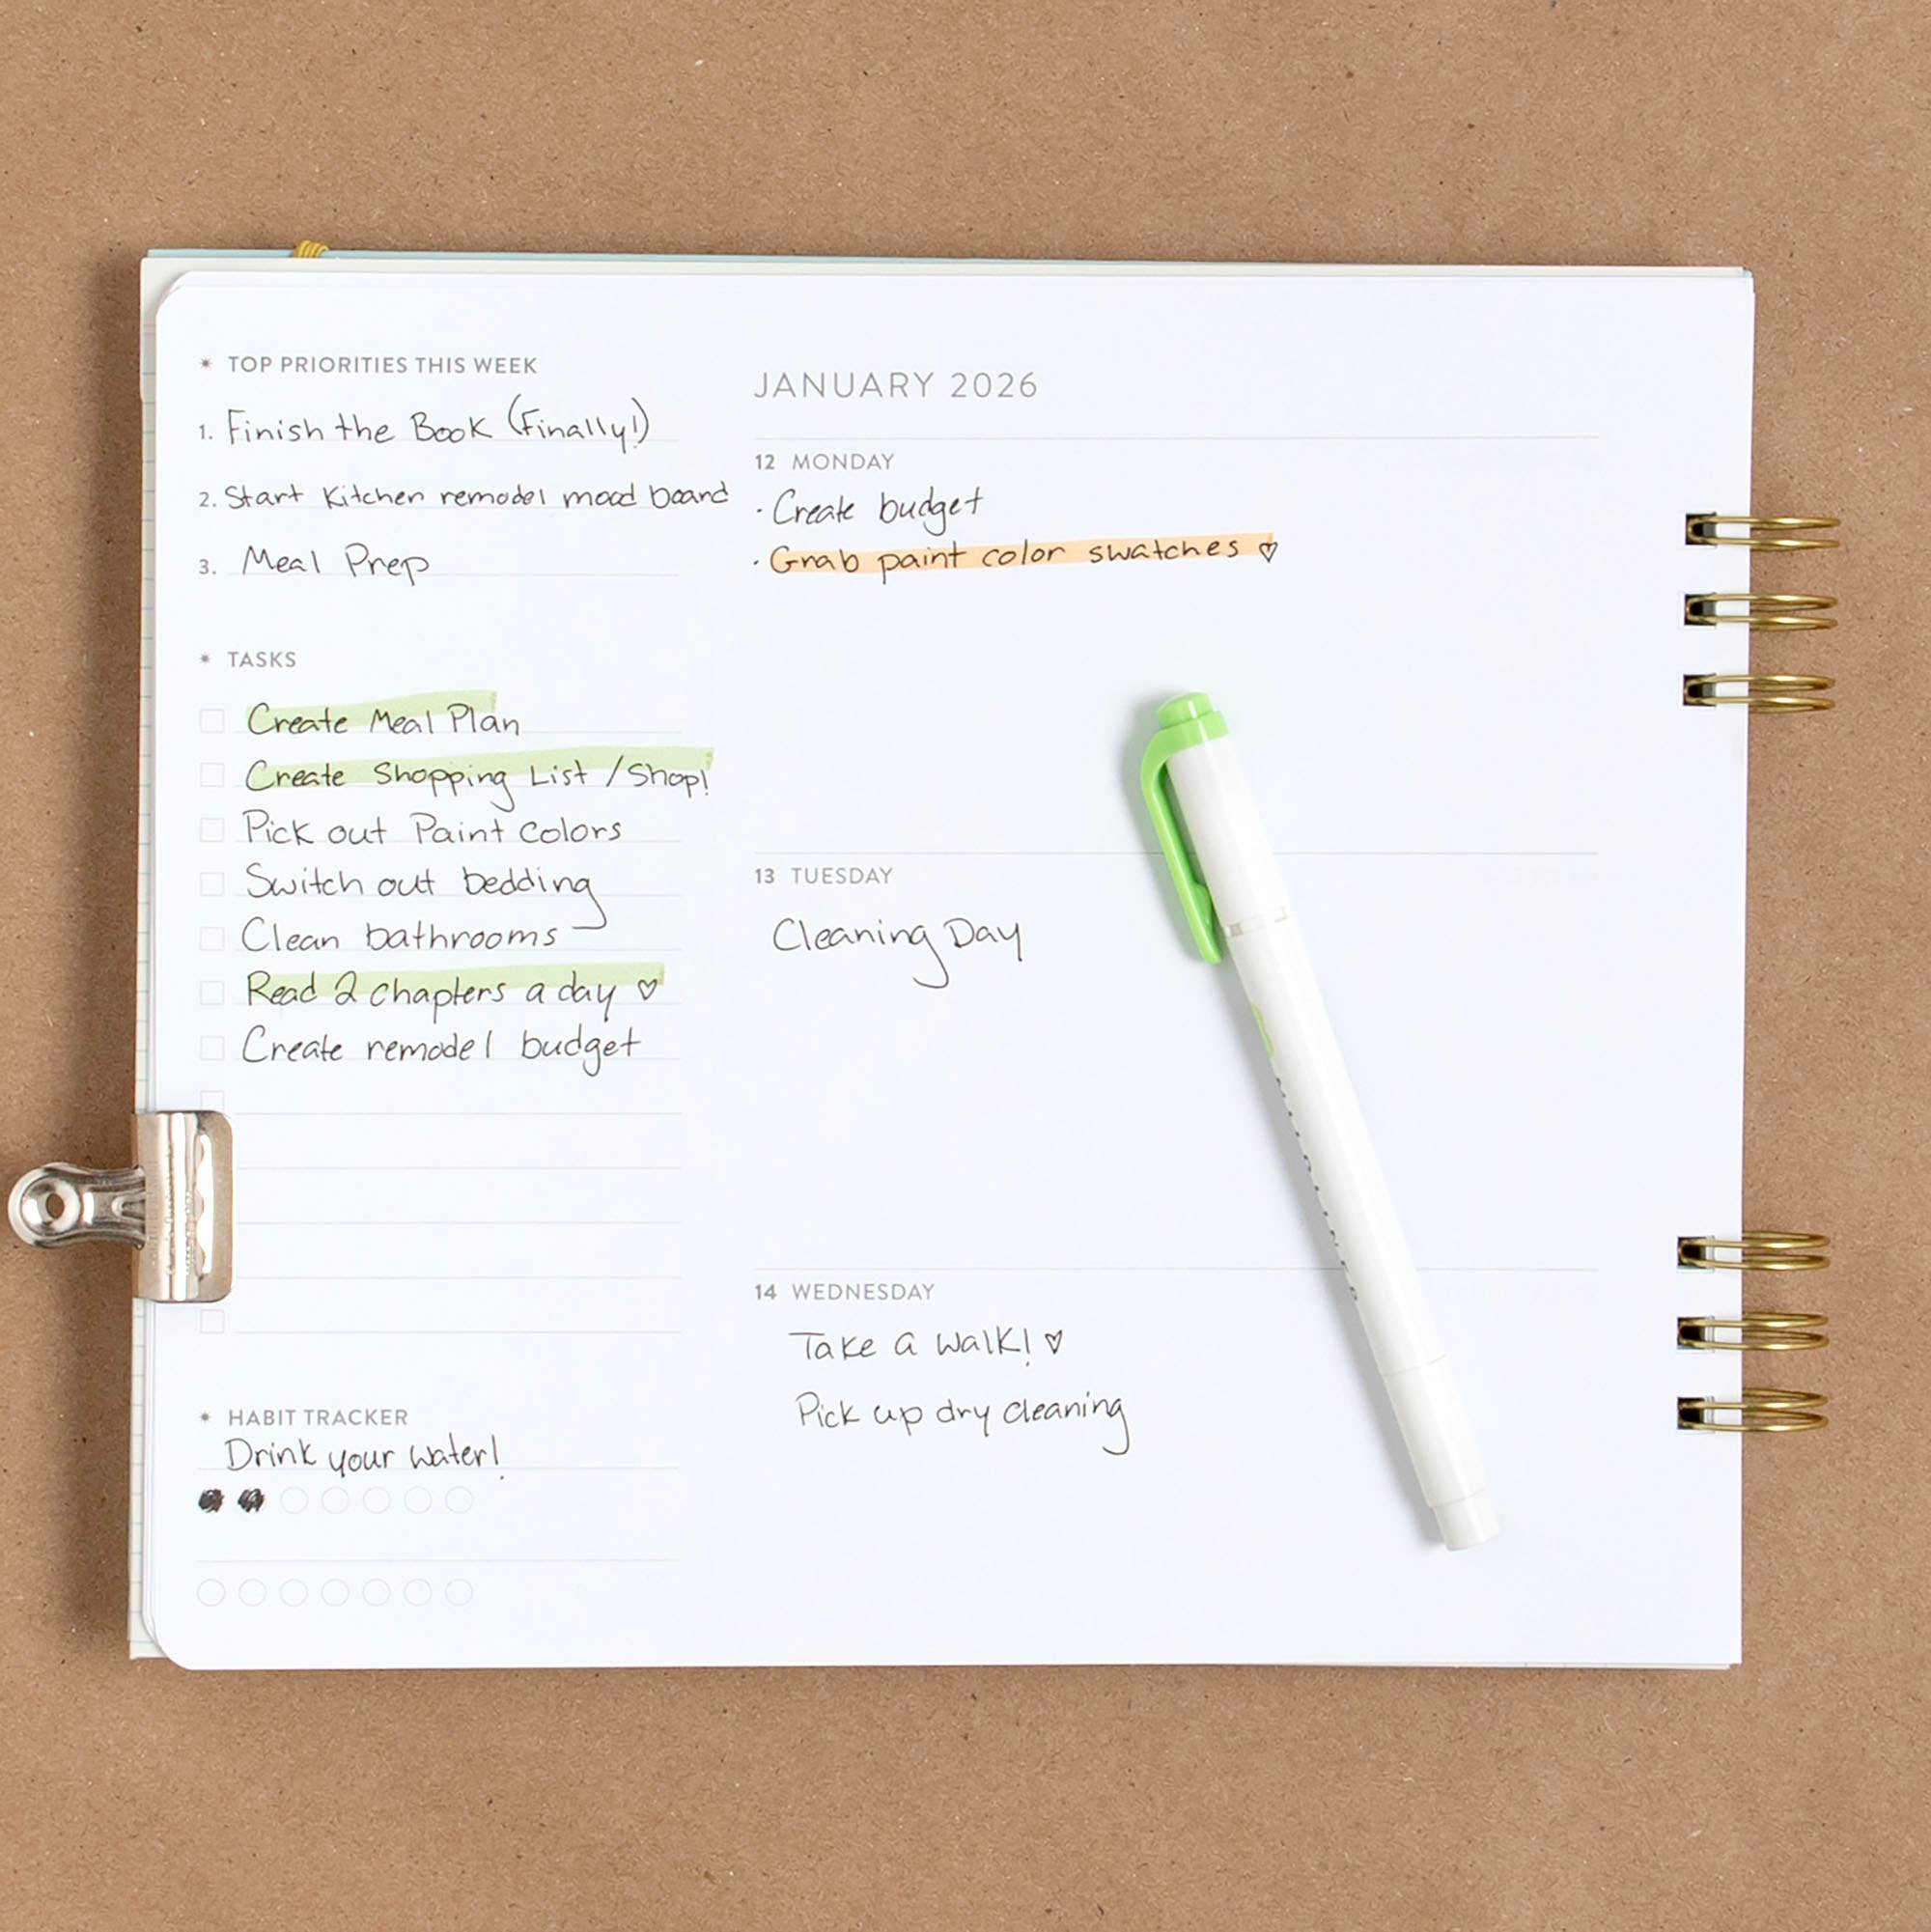 * TOP PRIORITIES THIS WEEK
1. Finish the Book (Finally!)
2. Start Kitchen remodel mood board
3. Meal Prep
* TASKS
Create Meal Plan
Create Shopping List / Shop!
Pick out Paint colors
Switch out bedding
Clean bathrooms
Read 2 chapters a day ♡
Create remodel budget
* HABIT TRACKER
Drink your water!
JANUARY 2026
12 MONDAY
· Create budget
· Grab paint color swatches ♡
13 TUESDAY
Cleaning Day
14 WEDNESDAY
Take a walk! ♡
Pick up dry cleaning